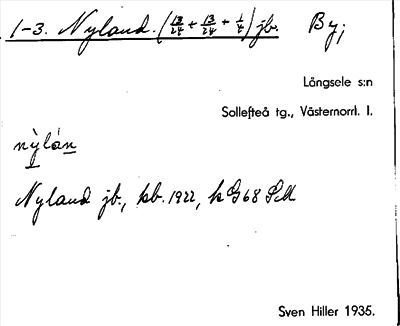 1-3. Nyland. (13/24 + 13/24 + 1/4) jb. By;
Långsele s:n
Sollefteå tg., Västernorrl. l.
nỳlán
Nyland jb., kb. 1922, k G68 SM
Sven Hiller 1935.